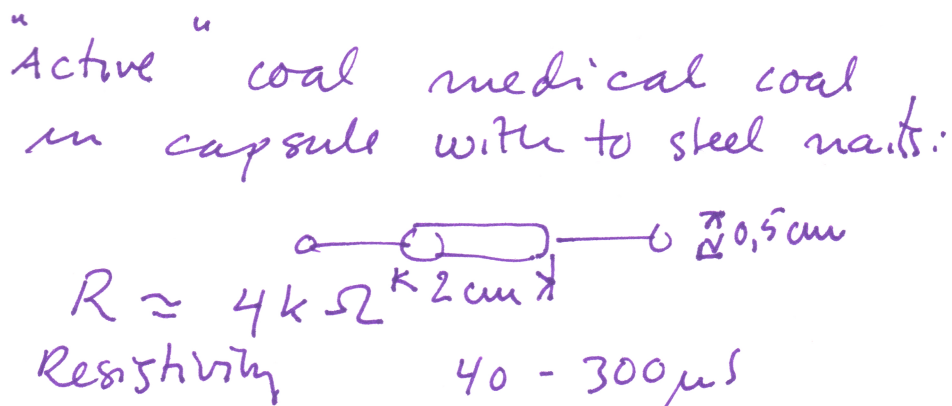 "Active" coal medical coal
in capsule with to steel nails:
≈ 0,5 cm
R ≈ 4k Ω 2 cm
Resistivity 40 - 300 μS